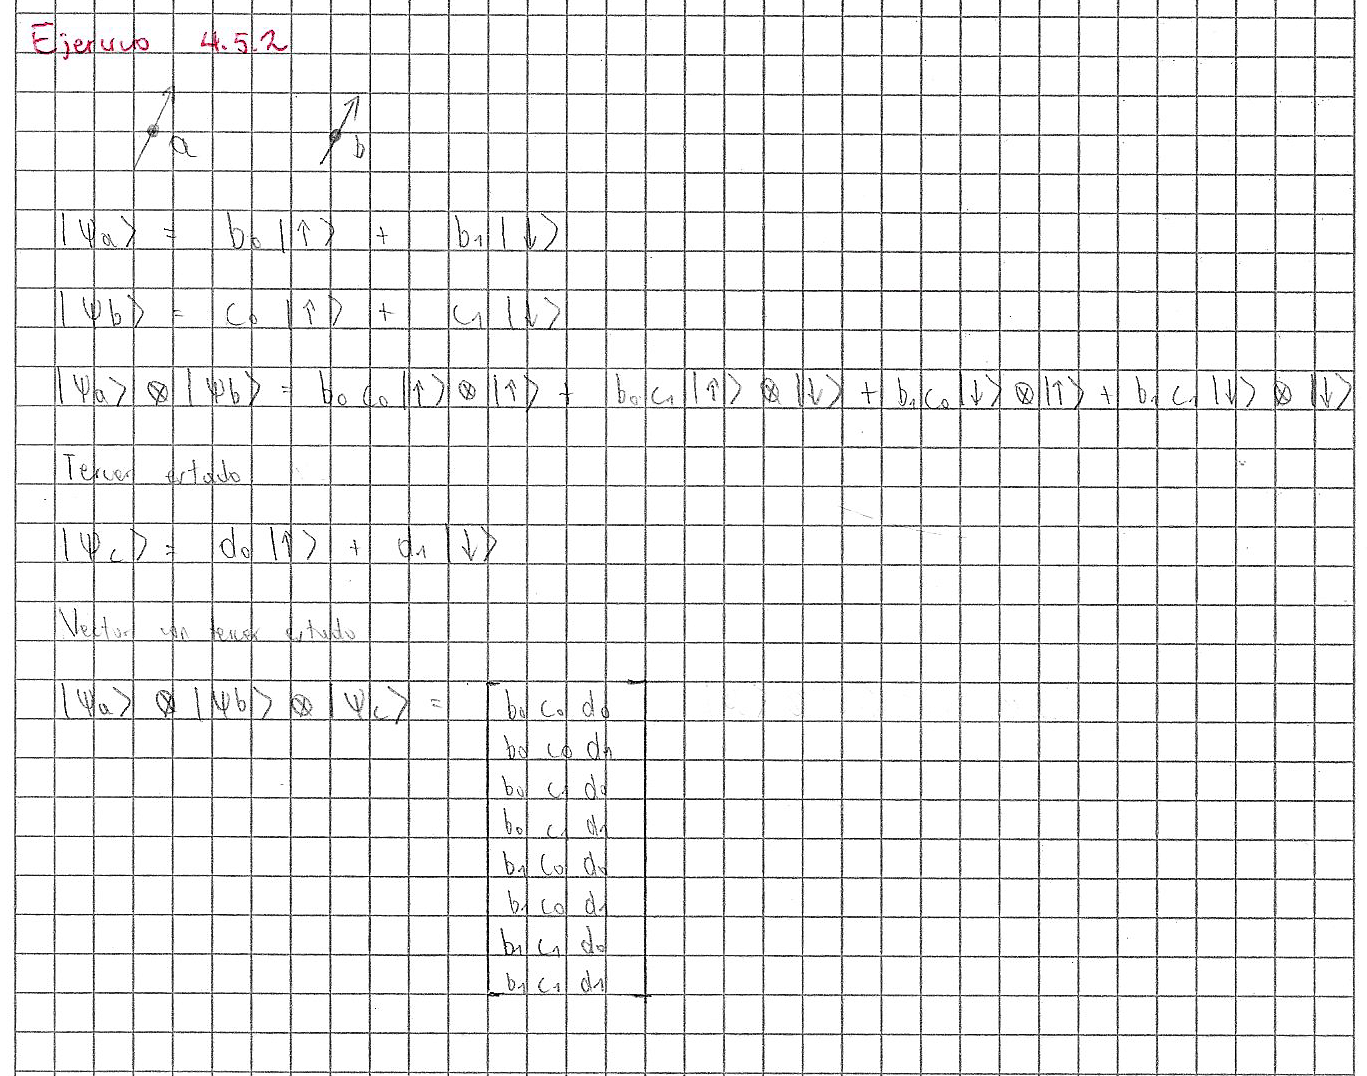 Ejercicio 4.5.2
a b
|Ψa⟩ = b₀ |↑⟩ + b₁ |↓⟩
|Ψb⟩ = c₀ |↑⟩ + c₁ |↓⟩
|Ψa⟩ ⊗ |Ψb⟩ = b₀ c₀ |↑⟩ ⊗ |↑⟩ + b₀ c₁ |↑⟩ ⊗ |↓⟩ + b₁ c₀ |↓⟩ ⊗ |↑⟩ + b₁ c₁ |↓⟩ ⊗ |↓⟩
Tercer estado
|Ψc⟩ = d₀ |↑⟩ + d₁ |↓⟩
Vector con tercer estado
|Ψa⟩ ⊗ |Ψb⟩ ⊗ |Ψc⟩ = b₀ c₀ d₀
b₀ c₀ d₁
b₀ c₁ d₀
b₀ c₁ d₁
b₁ c₀ d₀
b₁ c₀ d₁
b₁ c₁ d₀
b₁ c₁ d₁